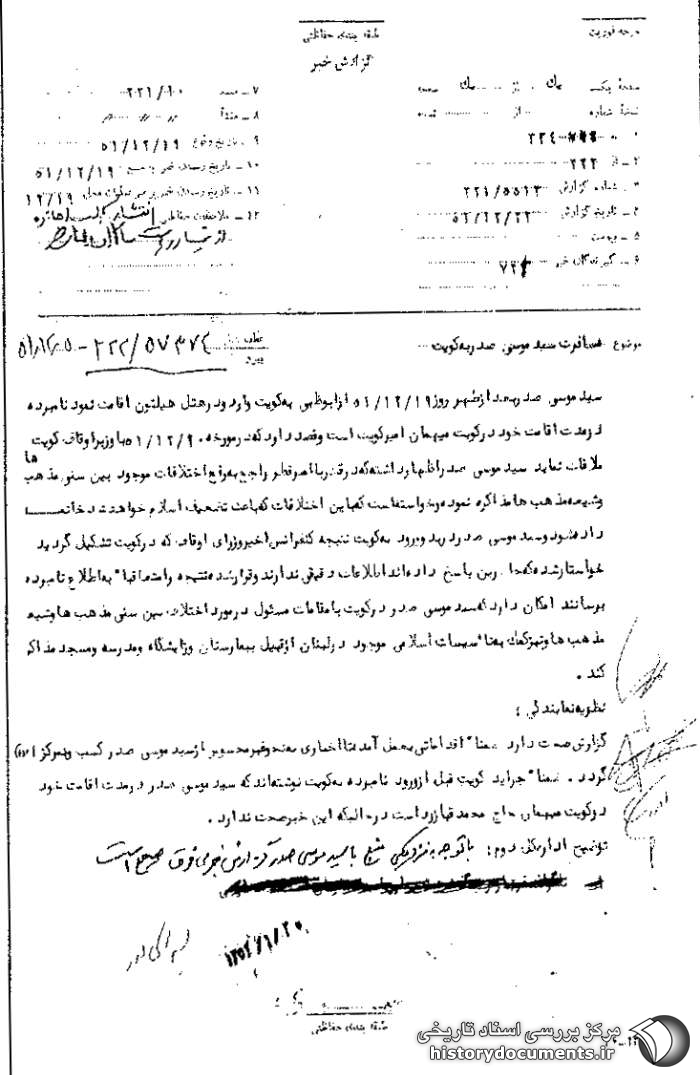 درجه فوریت
طبقه بندی حفاظتی
گزارش خبر
صفحه یک از یک صفحه
نسخه شماره از نسخه
۱ - به ۳۳۴
۲ - از ۲۲۲
۳ - شماره گزارش ۲۲۱/۵۵۱۳
۴ - تاریخ گزارش ۵۲/۱۲/۲۲
۵ - پیوست
۶ - گیرندگان خبر ۷۲۴
۷ - منبع ۲۲۱/۱۰
۸ - منشأ
۹ - تاریخ وقوع ۵۱/۱۲/۱۹
۱۰ - تاریخ رسیدن خبر به منبع ۵۱/۱۲/۱۹
۱۱ - تاریخ رسیدن خبر به رهبر عملیات محل ۱۲/۱۹
۱۲ - ملاحظات حفاظتی
موضوع مسافرت سید موسی صدر به کویت
عطف
پیرو
۲۲۲/۵۷۳۷۴ -
سید موسی صدر بعد از ظهر روز ۵۱/۱۲/۱۹ از ابوظبی به کویت وارد و در هتل هیلتون اقامت نمود نامبرده
در مدت اقامت خود در کویت میهمان امیر کویت است و قصد دارد که در مورخه ۵۱/۱۲/۲۰ با وزیر اوقاف کویت
ملاقات نماید سید موسی صدر اظهار داشته که در قطر با امیر قطر راجع به رفع اختلافات موجود بین سنی مذهب ها
و شیعه مذهب ها مذاکره نموده و خواسته است که به این اختلافات که باعث تضعیف اسلام خواهد شد خاتمه
داده شود و سید موسی صدر در بدو ورود به کویت نتیجه کنفرانس اخیر وزرای اوقاف که در کویت تشکیل گردید
خواستار شده که پاسخ داده اند اطلاعات دقیقی ندارند و قرار شده نتیجه را متعاقبا" به اطلاع نامبرده
برسانند امکان دارد که سید موسی صدر در کویت با مقامات مسئول در مورد اختلاف بین سنی مذهب ها و شیعه
مذهب ها و نیز کمک به تأسیسات اسلامی موجود در لبنان از قبیل بیمارستان و زایشگاه و مدرسه و مسجد مذاکره
کند .
نظریه نمایندگی :
گزارش صحت دارد ضمنا" اقداماتی بعمل آمد تا اخباری به نحو غیر محسوس از سید موسی صدر کسب و به مرکز اعلام
گردد . ضمنا" جراید کویت قبل از ورود نامبرده به کویت نوشته اند که سید موسی صدر در مدت اقامت خود
در کویت میهمان حاج محمد قبازرد است در حالیکه این خبر صحت ندارد .
توضیح اداره کل دوم : با توجه به نزدیکی منبع با سید موسی صدر گزارش خبری فوق صحیح است
طبقه بندی حفاظتی
مرکز بررسی اسناد تاریخی
historydocuments.ir